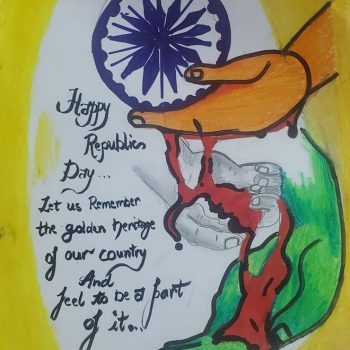 Happy
Republies
Day...
Let us Remember
the golden heritage
of our country
And
feel to be a part
of it...